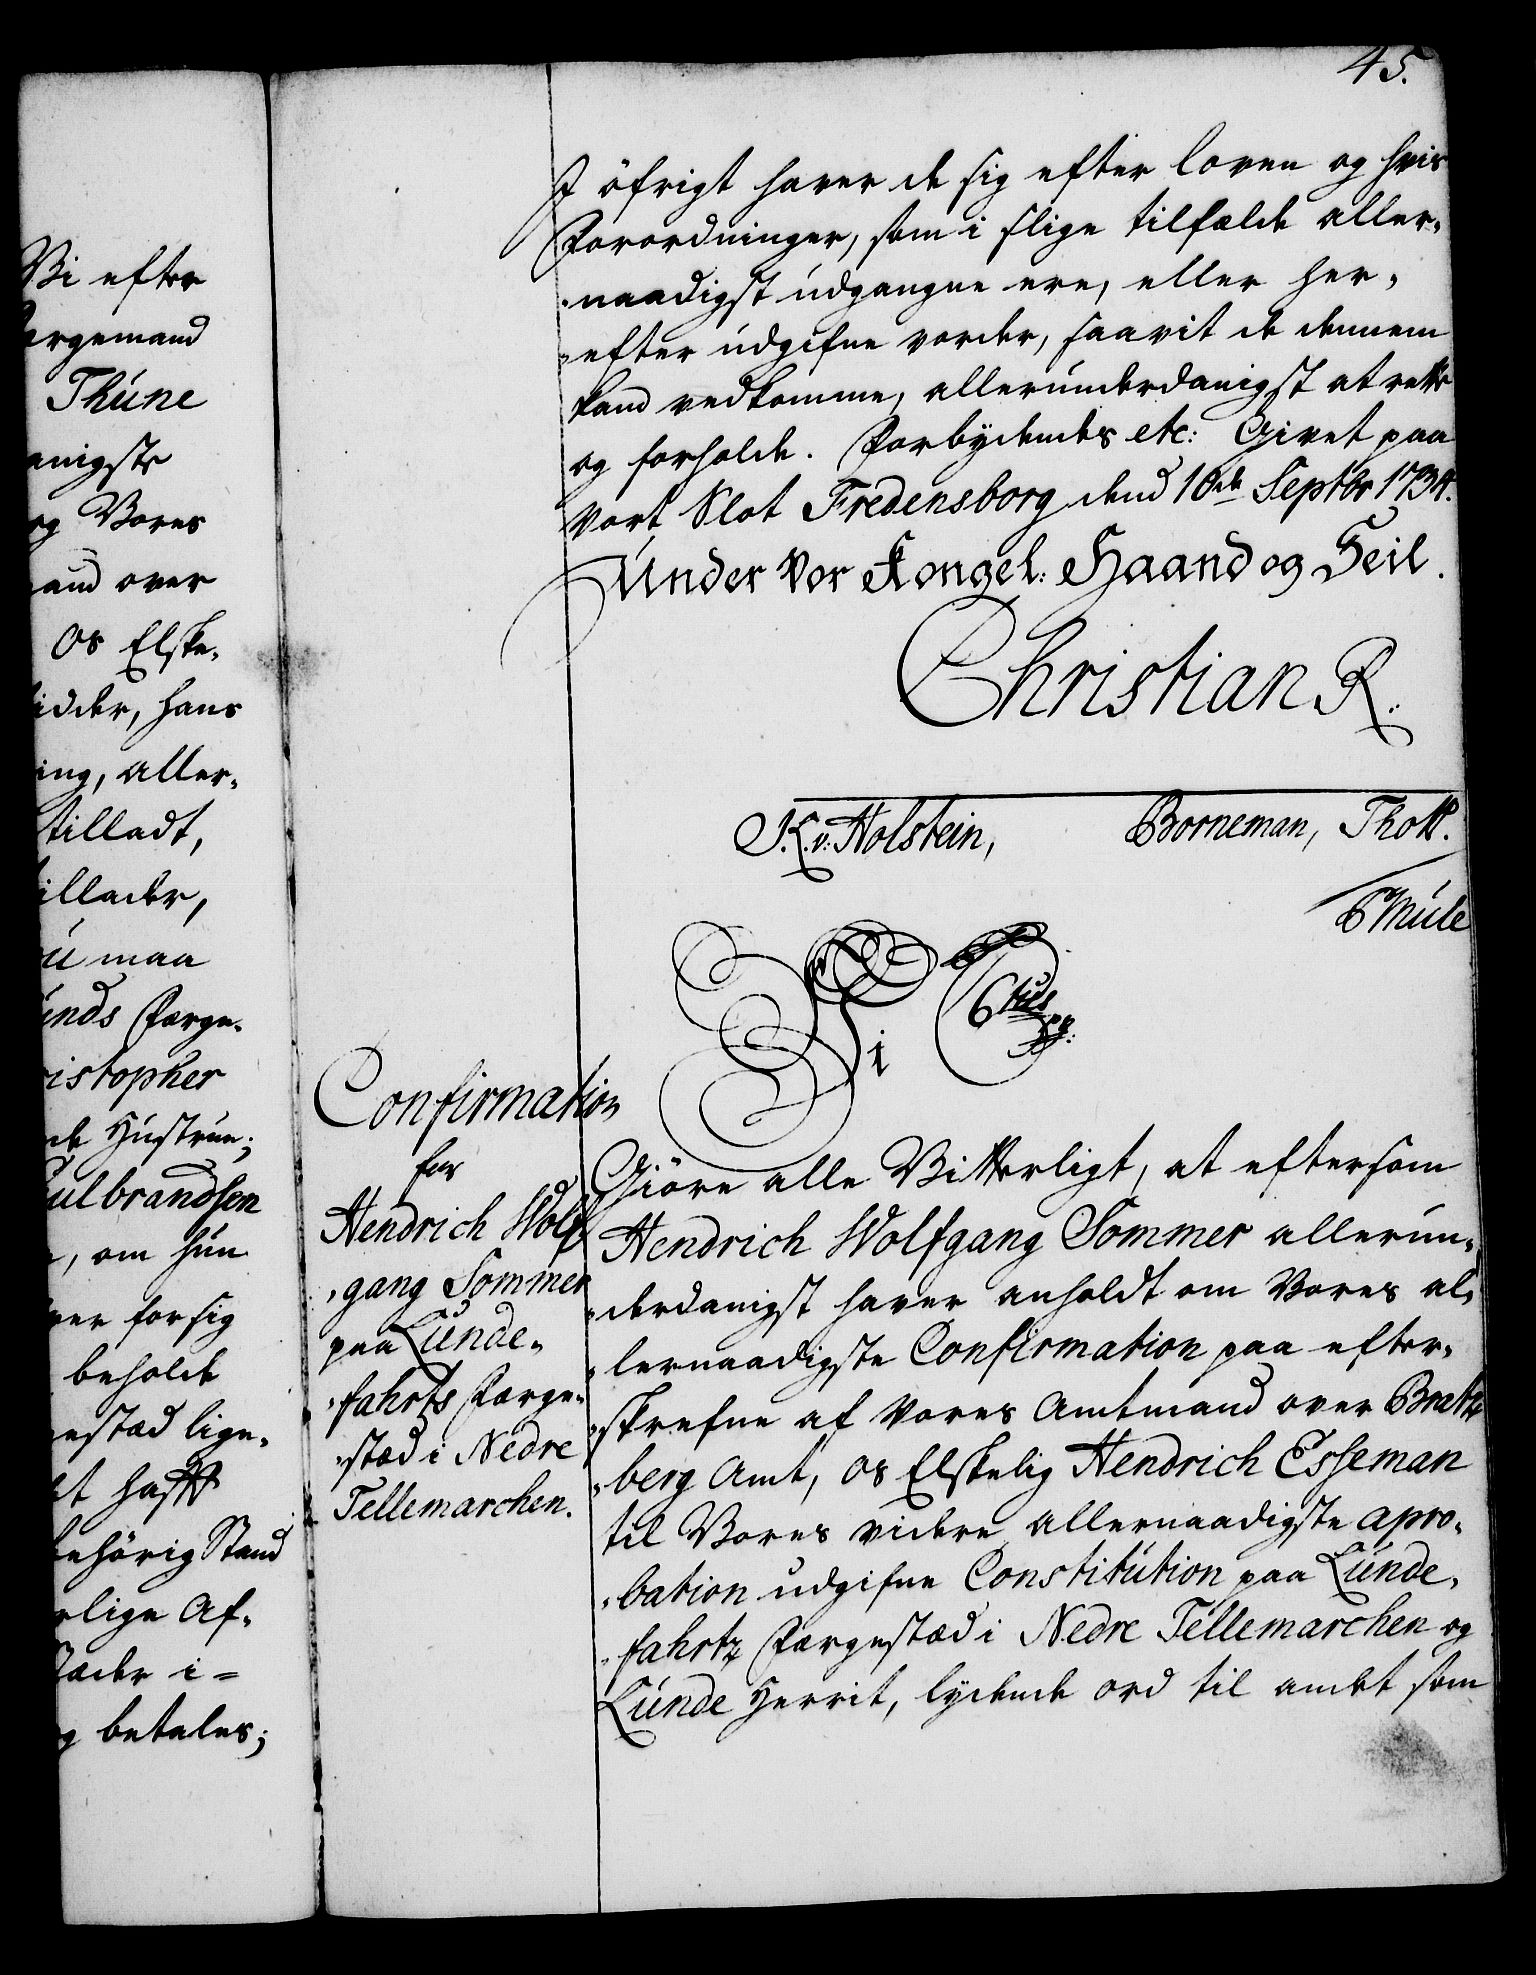 45.
Vi efter
Færgemand
Thúne
anigste
og Vores
mand over
Os Elske-
idder, hans
ing, aller-
tilladt,
tillader,
ú maa
únds Færge-
istopher
de Hústrúe;
Gulbrandsen
, om hún
ver for sig
beholde
estæd lige-
et hafft
behörig Stand
rlige Af-
Stæder i=
og betales;
I öfrigt haver de sig efter loven og hvis
Forordninger, som i slige tilfælde aller-
-naadigst údgangne ere, eller her-
-efter údgifne vorder, saavit de dennem
kand vedkomme, allerúnderdanigst at rette
og forholde. Forbydendes etc: Givet paa
vort Slot Fredensborg dend 10de Septbr 1734.
Únder Vor Kongel: Haand og Seil.
Christian R.
J. L. v: Holstein, Borneman, Thott.
Múle
Vi C 6tus pp:
Confirmation
for
Hendrich Wolf
-gang Sommer
paa Lúnde-
-fahrts Færge-
-stæd i Nedre
Tellemarchen.
Giöre alle Vitterligt, at eftersom
Hendrich Wolfgang Sommer allerún-
-derdanigst haver anholdt om Vores al-
-lernaadigste Confirmation paa efter-
-skrefne af Vores Amtmand over Bratz-
-berg Amt, Os Elskelig Hendrich Esseman
til Vores videre allernaadigste apro-
-bation udgifne Constitútion paa Lúnde-
-fahrtz Færgestæd i Nedre Tellemarchen og
Lúnde Herrit, lydende ord til andet som